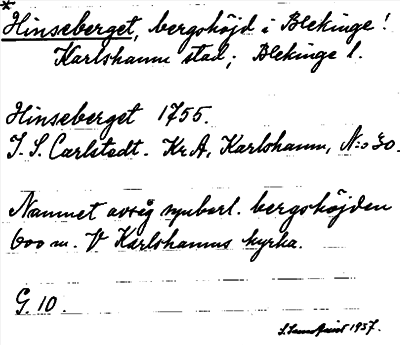 *Hinseberget, bergshöjd i Blekinge!
Karlshamn stad; Blekinge l.
Hinseberget 1755.
J. S. Carlstedt. KrA, Karlshamn, N:o 30.
Namnet avsåg synbarl. bergshöjden
600 m. V Karlshamns kyrka.
G. 10.
S. Landquist 1937.